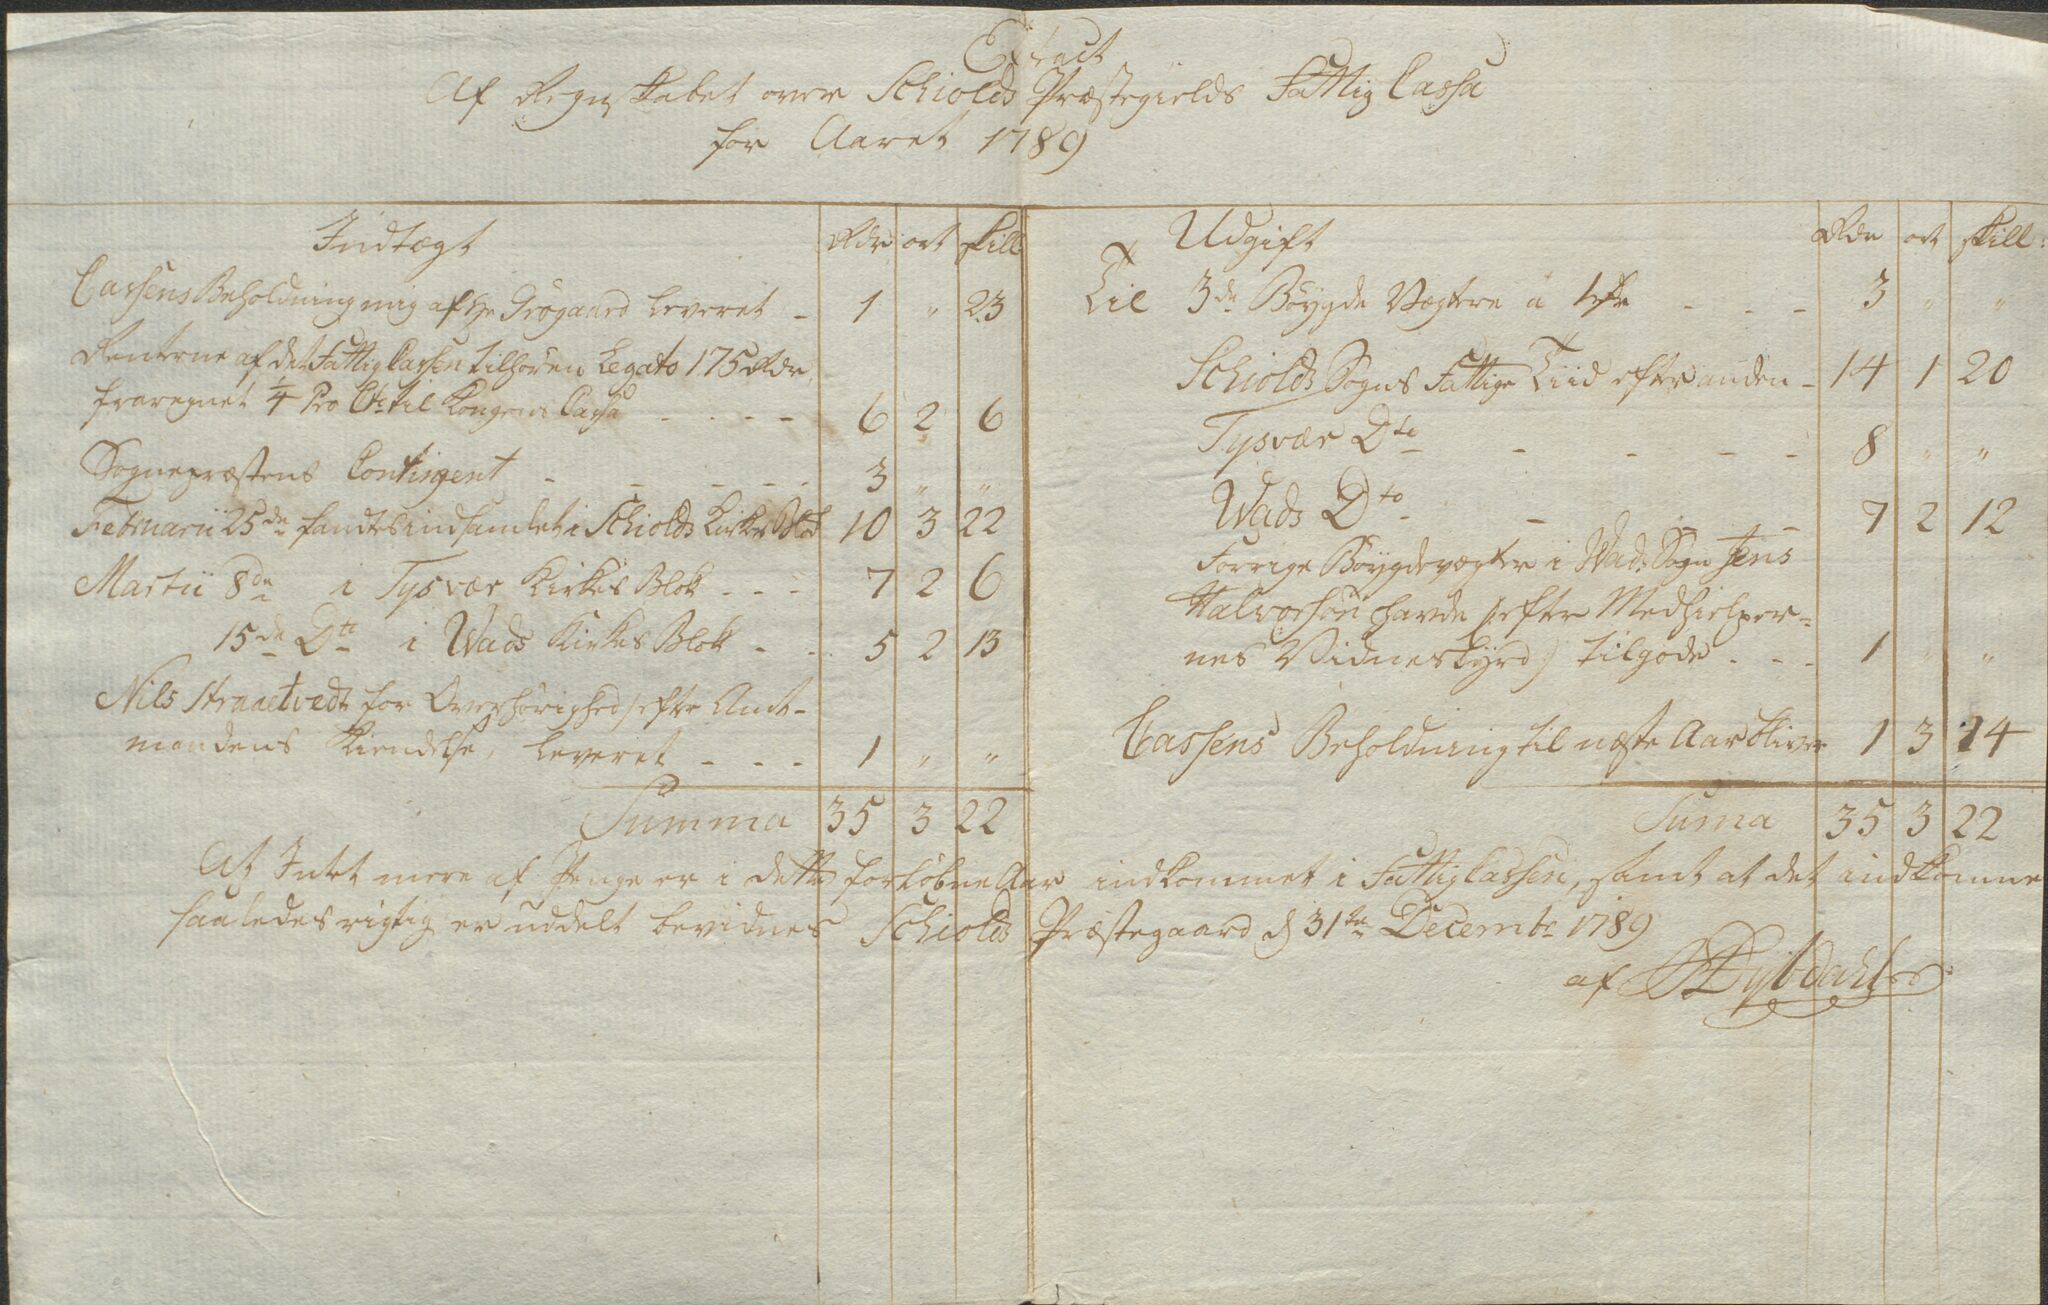 Extract
Af Regnskabet over Schiolds Præstegields Fattig Cassa
for Aaret 1789
Indtægt Rdr ort skill
Cassens Beholdning mig af Hr Grøgaard leveret - 1 " 23
Renterne af det Fattig Cassen tilhören Legato 175 Rdr
fraregnet 1/4 Pro Ct: til Kongens Cassa - - - - 6 2 6
Sognepræstens Contingent - - - - - 3 " "
Februarii 25de fandtes indsamlet i Schiolds Kirkes Blok 10 3 22
Martii 8de i Tysvær Kirkes Blok - - - 7 2 6
15de Dto i Wads Kirkes Blok - - 5 2 13
Nils Straaetvedt for Overhørighed, efter Amt-
mandens Kiendelse, leveret - - - 1 " "
Summa 35 3 22
Udgift Rdr ort skill:
Til 3de Böygde Vægtere a 1 rdr - - - 3 " "
Schiolds Sogns Fattige Tiid efter anden - 14 1 20
Tysvær Dto - - - - - 8 " "
Wads Dto - - - 7 2 12
Forrige Böygdevægter i Wads Sogn Jens
Halvorsön havde (efter Medhielper-
nes Vidnesbyrd) tilgode - - - 1 " "
Cassens Beholdning til næste Aar bliver 1 3 14
Suma 35 3 22
At Intet mere af Penge er i dette forløbne Aar indkommet i Fattig Cassen, samt at det indkomne
saaledes rigtig er uddelt bevidnes Schiolds Præstegaard d 31te Decembr 1789
af Dybdahl